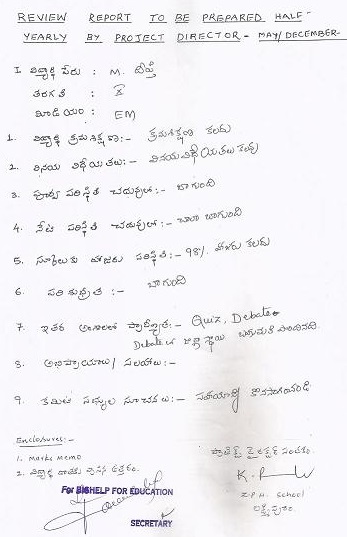 REVIEW REPORT TO BE PREPARED HALF-
YEARLY BY PROJECT DIRECTOR - MAY/DECEMBER-
I. విద్యార్థి పేరు : M. దీప్తి
తరగతి : X
మీడియం : EM
1. విద్యార్థి క్రమశిక్షణ:- క్రమశిక్షణ కలదు
2. వినయ విధేయతలు:- వినయవిధేయతలు కలవు
3. పూర్వ పరిస్థితి చదువులో:- బాగుంది
4. నేటి పరిస్థితి చదువులో:- చాలా బాగుంది
5. స్కూలుకు హాజరు పరిస్థితి:- 98% హాజరు కలదు
6. పరిశుభ్రత :- బాగుంది
7. ఇతర అంశాలలో ప్రావీణ్యత:- Quiz, Debate
Debate లో జిల్లా స్థాయి బహుమతి పొందినది.
8. అభిప్రాయాలు/ సలహాలు:-
9. కమిటీ సభ్యుల సూచనలు:- సహాయాన్ని కొనసాగించండి
Enclosures:-
1. Marks Memo
2. విద్యార్థి రాసిన ఉత్తరం.
ప్రాజెక్ట్ డైరెక్టర్ సంతకం.
For BIGHELP FOR EDUCATION
SECRETARY
Z.P.H. School
లక్ష్మీపురం.